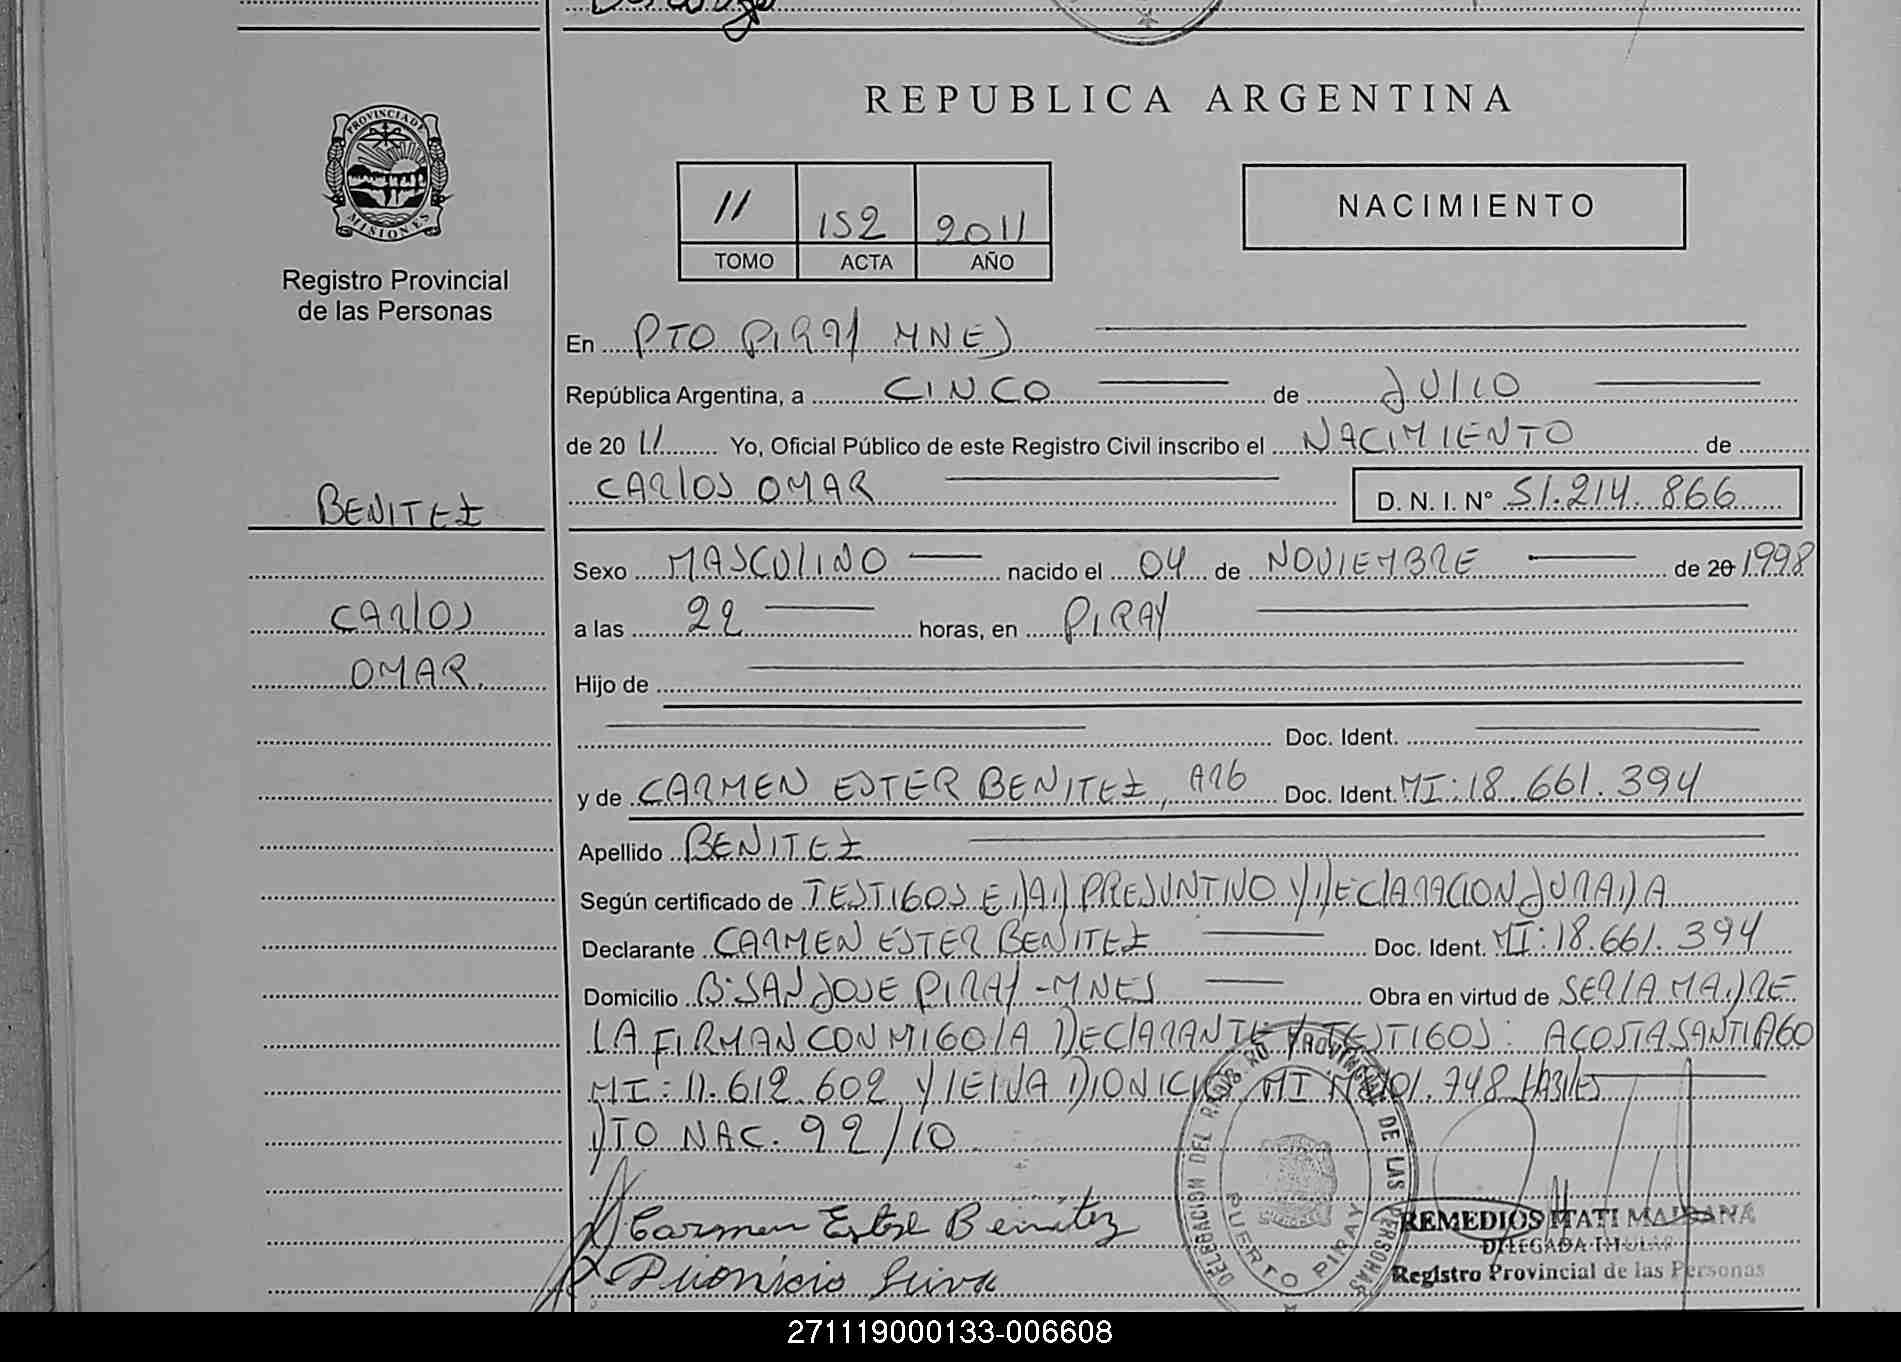 REPUBLICA ARGENTINA
PROVINCIA DE
MISIONES
Registro Provincial
de las Personas
11 152 2011
TOMO ACTA AÑO
NACIMIENTO
En PTO PIRAY MNES
República Argentina, a CINCO de JULIO
de 20 11 Yo, Oficial Público de este Registro Civil inscribo el NACIMIENTO de
CARLOS OMAR D. N. I. N° 51.214.866
BENITEZ
CARLOS
OMAR.
Sexo MASCULINO nacido el 04 de NOVIEMBRE de 20 1998
a las 22 horas, en PIRAY
Hijo de
Doc. Ident.
y de CARMEN ESTER BENITEZ, ARG Doc. Ident. MI: 18.661.394
Apellido BENITEZ
Según certificado de TESTIGOS EDAD PRESUNTIVO Y DECLARACION JURADA
Declarante CARMEN ESTER BENITEZ Doc. Ident. MI: 18.661.394
Domicilio B: SAN JOSE PIRAY - MNES Obra en virtud de SER LA MADRE
LA FIRMAN CONMIGO LA DECLARANTE Y TESTIGOS: ACOSTA SANTIAGO
MI: 11.612.602 Y LEIVA DIONICIO MI 748 HABILES
DTO NAC. 92/10
Carmen Ester Benitez
Dionicio Leiva
DELEGACION DEL REGISTRO PROVINCIAL DE LAS PERSONAS
PUERTO PIRAY
REMEDIOS ITATI MAIDANA
DELEGADA TITULAR
Registro Provincial de las Personas
271119000133-006608